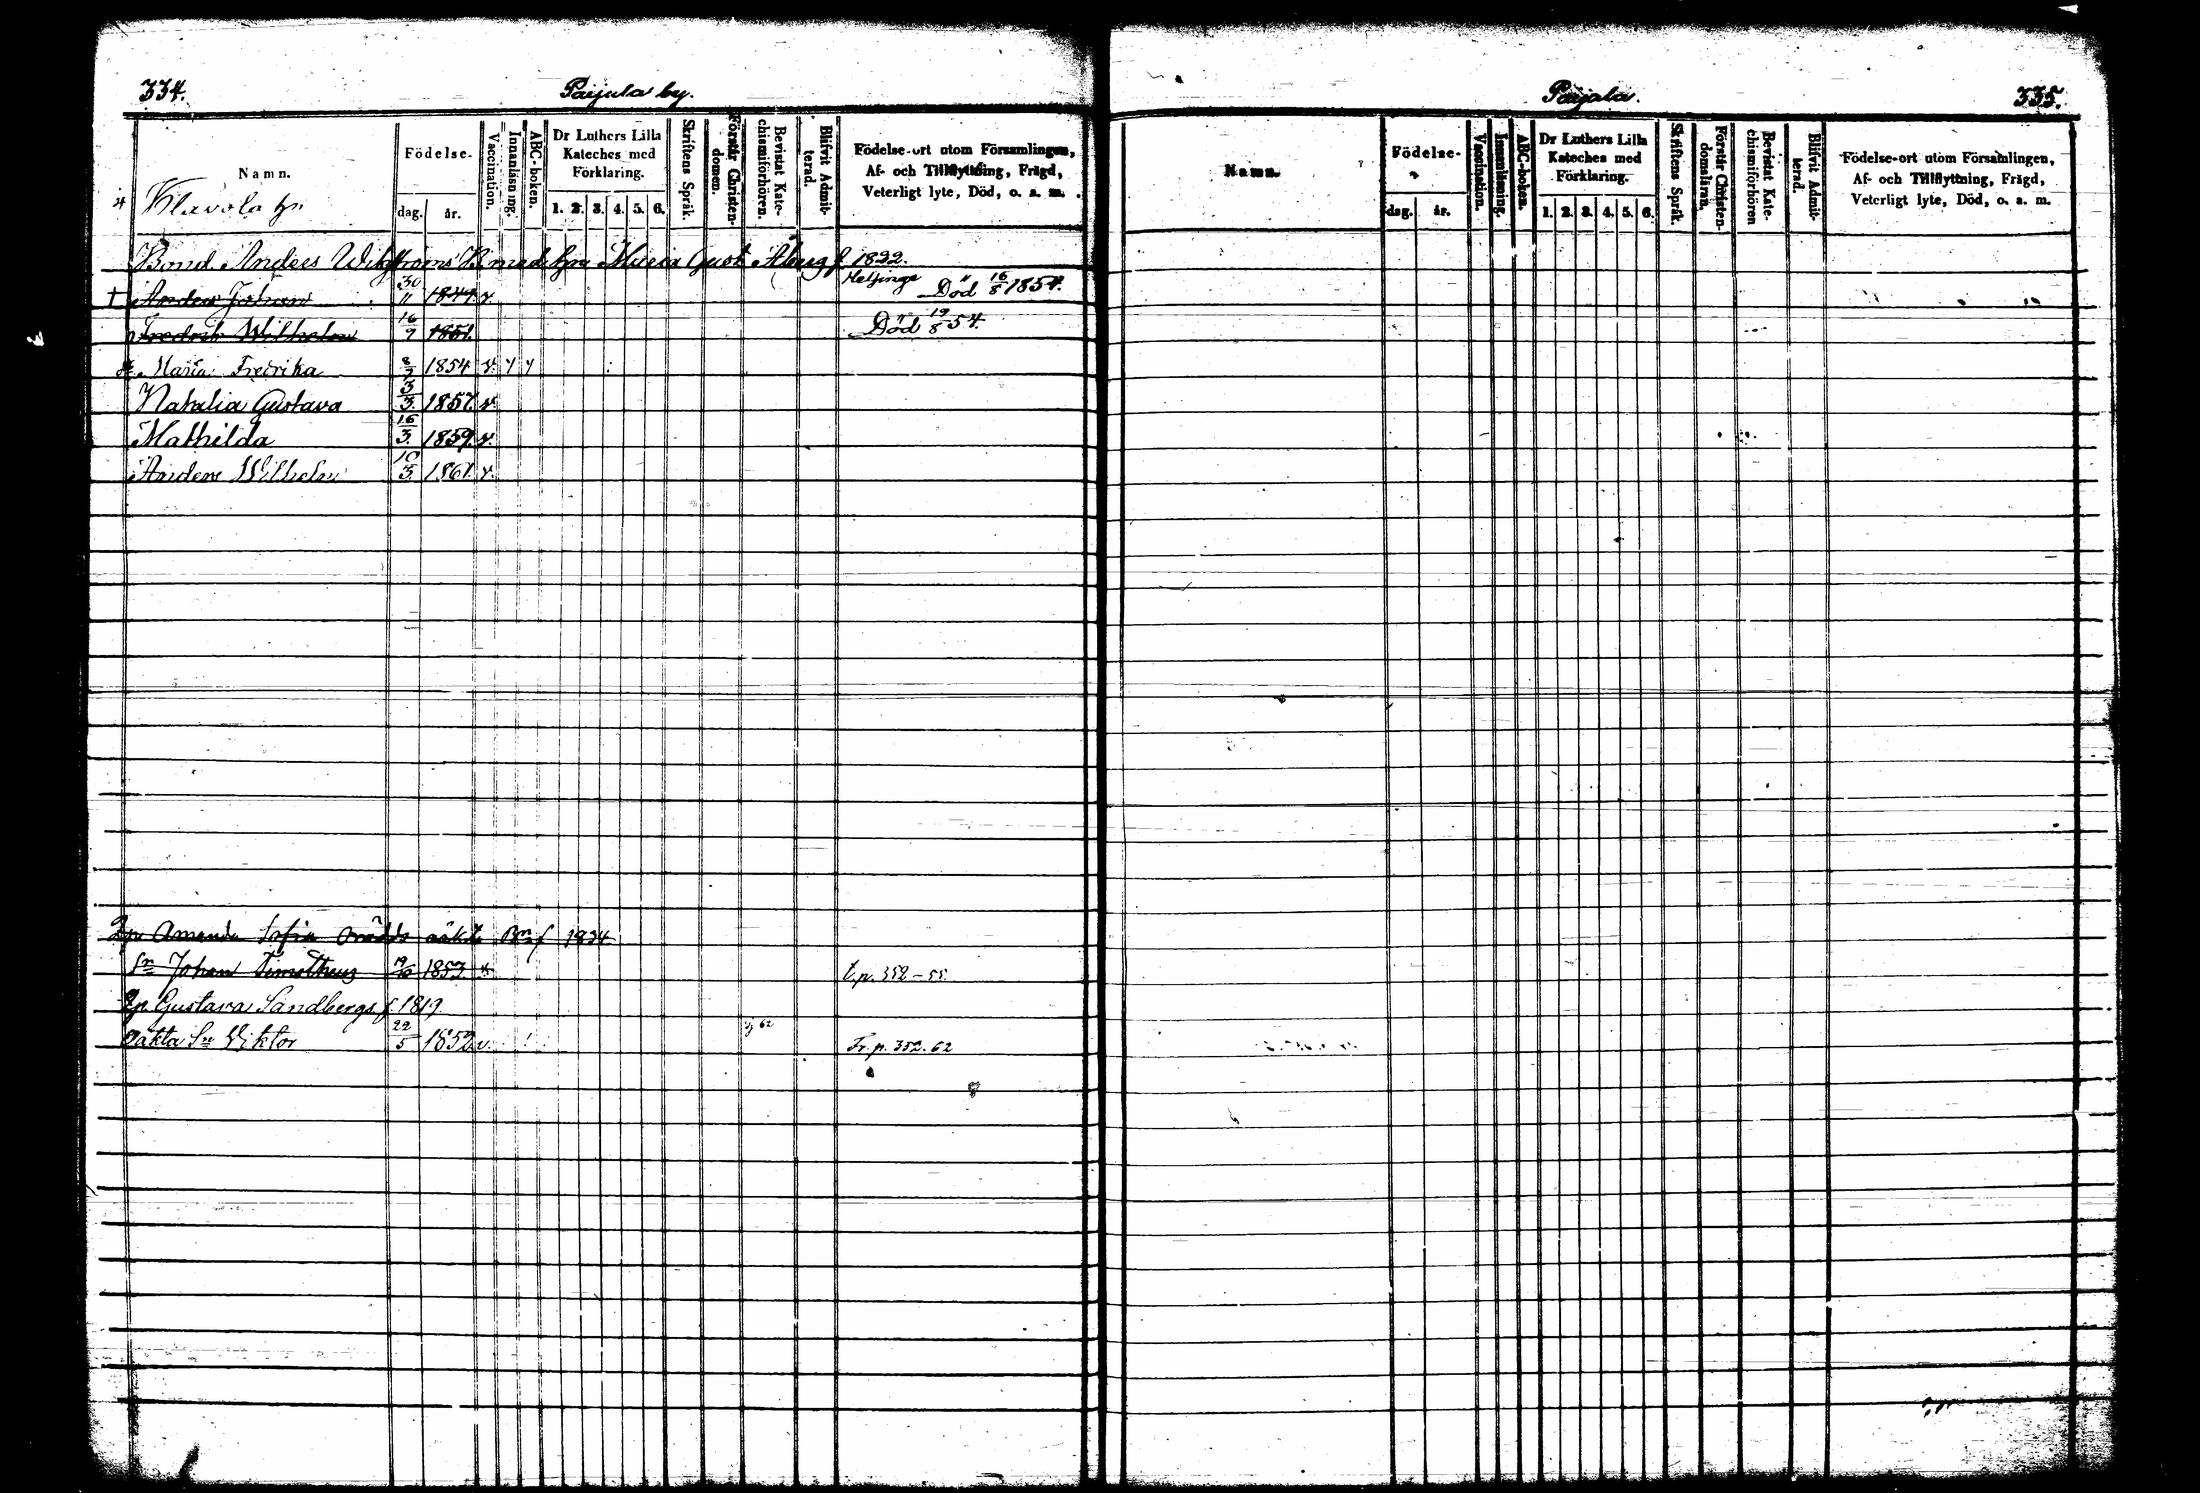 334.
Päijala by.
Namn.
Födelse-
dag. år.
Vaccination.
Innanläsning.
ABC-boken.
Dr Luthers Lilla
Kateches med
Förklaring.
1. 2. 3. 4. 5. 6.
Skriftens Språk.
Förstår Christen-
domen.
Bevistat Kate-
chismiförhören.
Blifvit Admit-
terad.
Födelse-ort utom Församlingen,
Af- och Tillflyttning, Frägd,
Veterligt lyte, Död, o. a. m.
Klavola
Bond. Anders Wikströms B. med hu Maria Gust. f. 1822.
† Anders Johan 30/11 1849. v. Helsinge Död 16/8 1854.
Fredrik Wilhelm 16/9 1851. Död 19/8 54.
Maria Fredrika 8/7 1854 v.
Natalia Gustava 3/3. 1857. v.
Mathilda 16/3. 1859. v.
Anders Wilhelm 10/5. 1861. v.
Amanda Sofia oäkta f 1834
Sn Johan Timotheus 19/10 1853 v t. p. 352-55
Gustava Sandbergs f. 1819.
Oäkta Sn Viktor 22/5 1852 v. 62 Fr. p. 352. 62
Päijala.
335.
Namn.
Födelse-
dag. år.
Vaccination.
Innanläsning.
ABC-boken.
Dr Luthers Lilla
Kateches med
Förklaring.
1. 2. 3. 4. 5. 6.
Skriftens Språk.
Förstår Christen-
domsläran.
Bevistat Kate-
chismiförhören
Blifvit Admit-
terad.
Födelse-ort utom Församlingen,
Af- och Tillflyttning, Frägd,
Veterligt lyte, Död, o. a. m.